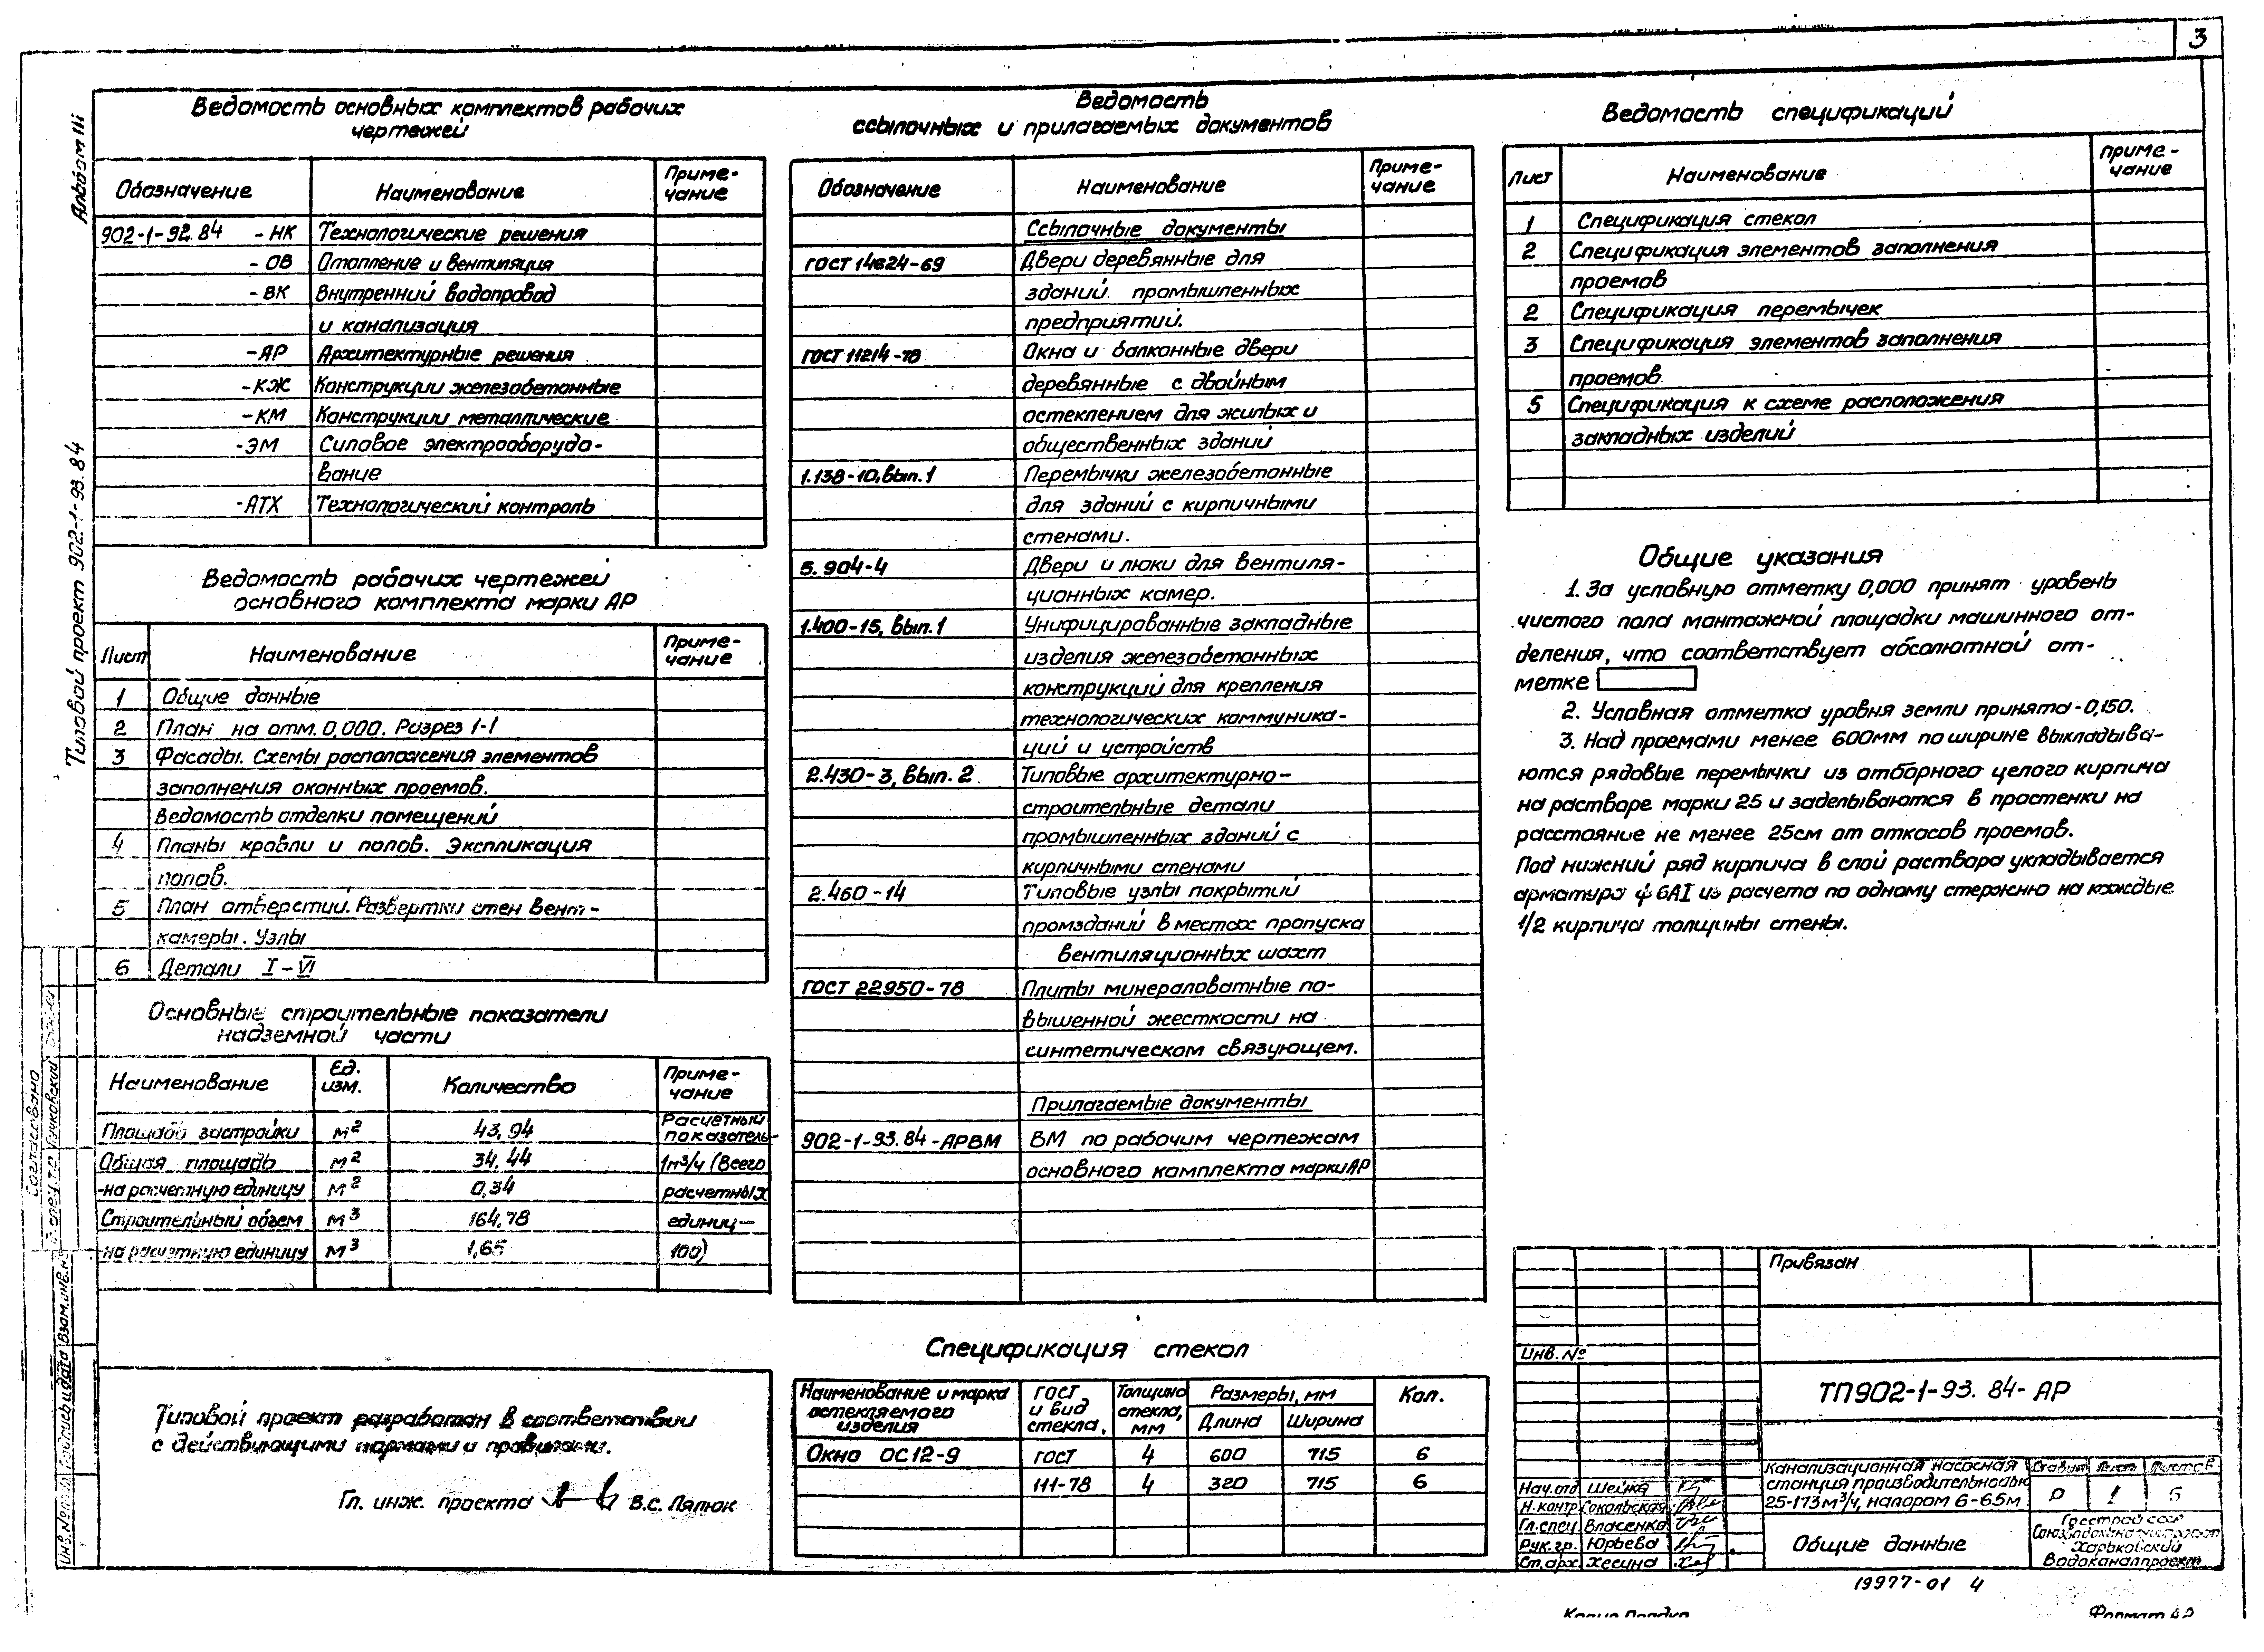 3
Альбом III
Типовой проект 902-1-93.84
Ведомость основных комплектов рабочих
чертежей
Обозначение Наименование Приме-
чание
902-1-92.84 -НК Технологические решения
-ОВ Отопление и вентиляция
-ВК Внутренний водопровод
и канализация
-АР Архитектурные решения
-КЖ Конструкции железобетонные
-КМ Конструкции металлические
-ЭМ Силовое электрооборудо-
вание
-АТХ Технологический контроль
Ведомость рабочих чертежей
основного комплекта марки АР
Лист Наименование Приме-
чание
1 Общие данные
2 План на отм. 0,000. Разрез 1-1
3 Фасады. Схемы расположения элементов
заполнения оконных проемов.
Ведомость отделки помещений
4 Планы кровли и полов. Экспликация
полов.
5 План отверстий. Развертки стен вент-
камеры. Узлы
6 Детали I-VI
Основные строительные показатели
надземной части
Наименование Ед.
изм. Количество Приме-
чание
Площадь застройки м2 43,94 Расчетный
показатель-
Общая площадь м2 34,44 1м3/ч (Всего
-на расчетную единицу м2 0,34 расчетных
Строительный объем м3 164,78 единиц-
-на расчетную единицу м3 1,65 100)
Типовой проект разработан в соответствии
с действующими нормами и правилами.
Гл. инж. проекта В.С. Лялюк
Ведомость
ссылочных и прилагаемых документов
Обозначение Наименование Приме-
чание
Ссылочные документы
ГОСТ 14624-69 Двери деревянные для
зданий промышленных
предприятий.
ГОСТ 11214-78 Окна и балконные двери
деревянные с двойным
остеклением для жилых и
общественных зданий
1.138-10, вып.1 Перемычки железобетонные
для зданий с кирпичными
стенами.
5.904-4 Двери и люки для вентиля-
ционных камер.
1.400-15, вып.1 Унифицированные закладные
изделия железобетонных
конструкций для крепления
технологических коммуника-
ций и устройств
2.430-3, вып. 2 Типовые архитектурно-
строительные детали
промышленных зданий с
кирпичными стенами
2.460-14 Типовые узлы покрытий
промзданий в местах пропуска
вентиляционных шахт
ГОСТ 22950-78 Плиты минераловатные по-
вышенной жесткости на
синтетическом связующем.
Прилагаемые документы
902-1-93.84-АРВМ ВМ по рабочим чертежам
основного комплекта марки АР
Спецификация стекол
Наименование и марка
остекляемого
изделия ГОСТ
и вид
стекла, Толщина
стекла,
мм Размеры, мм
Длина Ширина Кол.
Окно ОС12-9 ГОСТ 4 600 715 6
111-78 4 320 715 6
Ведомость спецификаций
Лист Наименование приме-
чание
1 Спецификация стекол
2 Спецификация элементов заполнения
проемов
2 Спецификация перемычек
3 Спецификация элементов заполнения
проемов
5 Спецификация к схеме расположения
закладных изделий
Общие указания
1. За условную отметку 0,000 принят уровень
чистого пола монтажной площадки машинного от-
деления, что соответствует абсолютной от-
метке
2. Условная отметка уровня земли принята -0,150.
3. Над проемами менее 600мм по ширине выкладыва-
ются рядовые перемычки из отборного целого кирпича
на растворе марки 25 и заделываются в простенки на
расстояние не менее 25см от откосов проемов.
Под нижний ряд кирпича в слой раствора укладывается
арматура ф 6АI из расчета по одному стержню на каждые
1/2 кирпича толщины стены.
Привязан
Инв. №
ТП902-1-93. 84- АР
Нач.отд Шейка
Н.контр. Сокольская
Гл.спец. Власенко
Рук.гр. Юрьева
Ст.арх. Хесина
Канализационная насосная
станция производительностью
25-173м3/ч, напором 6-65м
Стадия Лист Листов
Р 1 6
Общие данные
Госстрой СССР
Союзводоканалпроект
Харьковский
Водоканалпроект
19977-01 4
Формат А2
Согласовано
Инв.№ подл. Подпись и дата Взам.инв.№